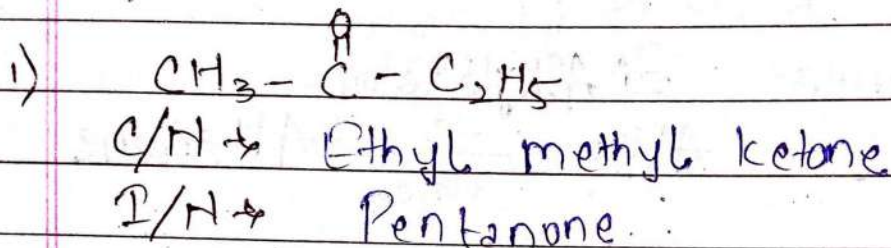 O
||
1) CH₃ - C - C₂H₅
C/N → Ethyl methyl ketone
I/N → Pentanone.